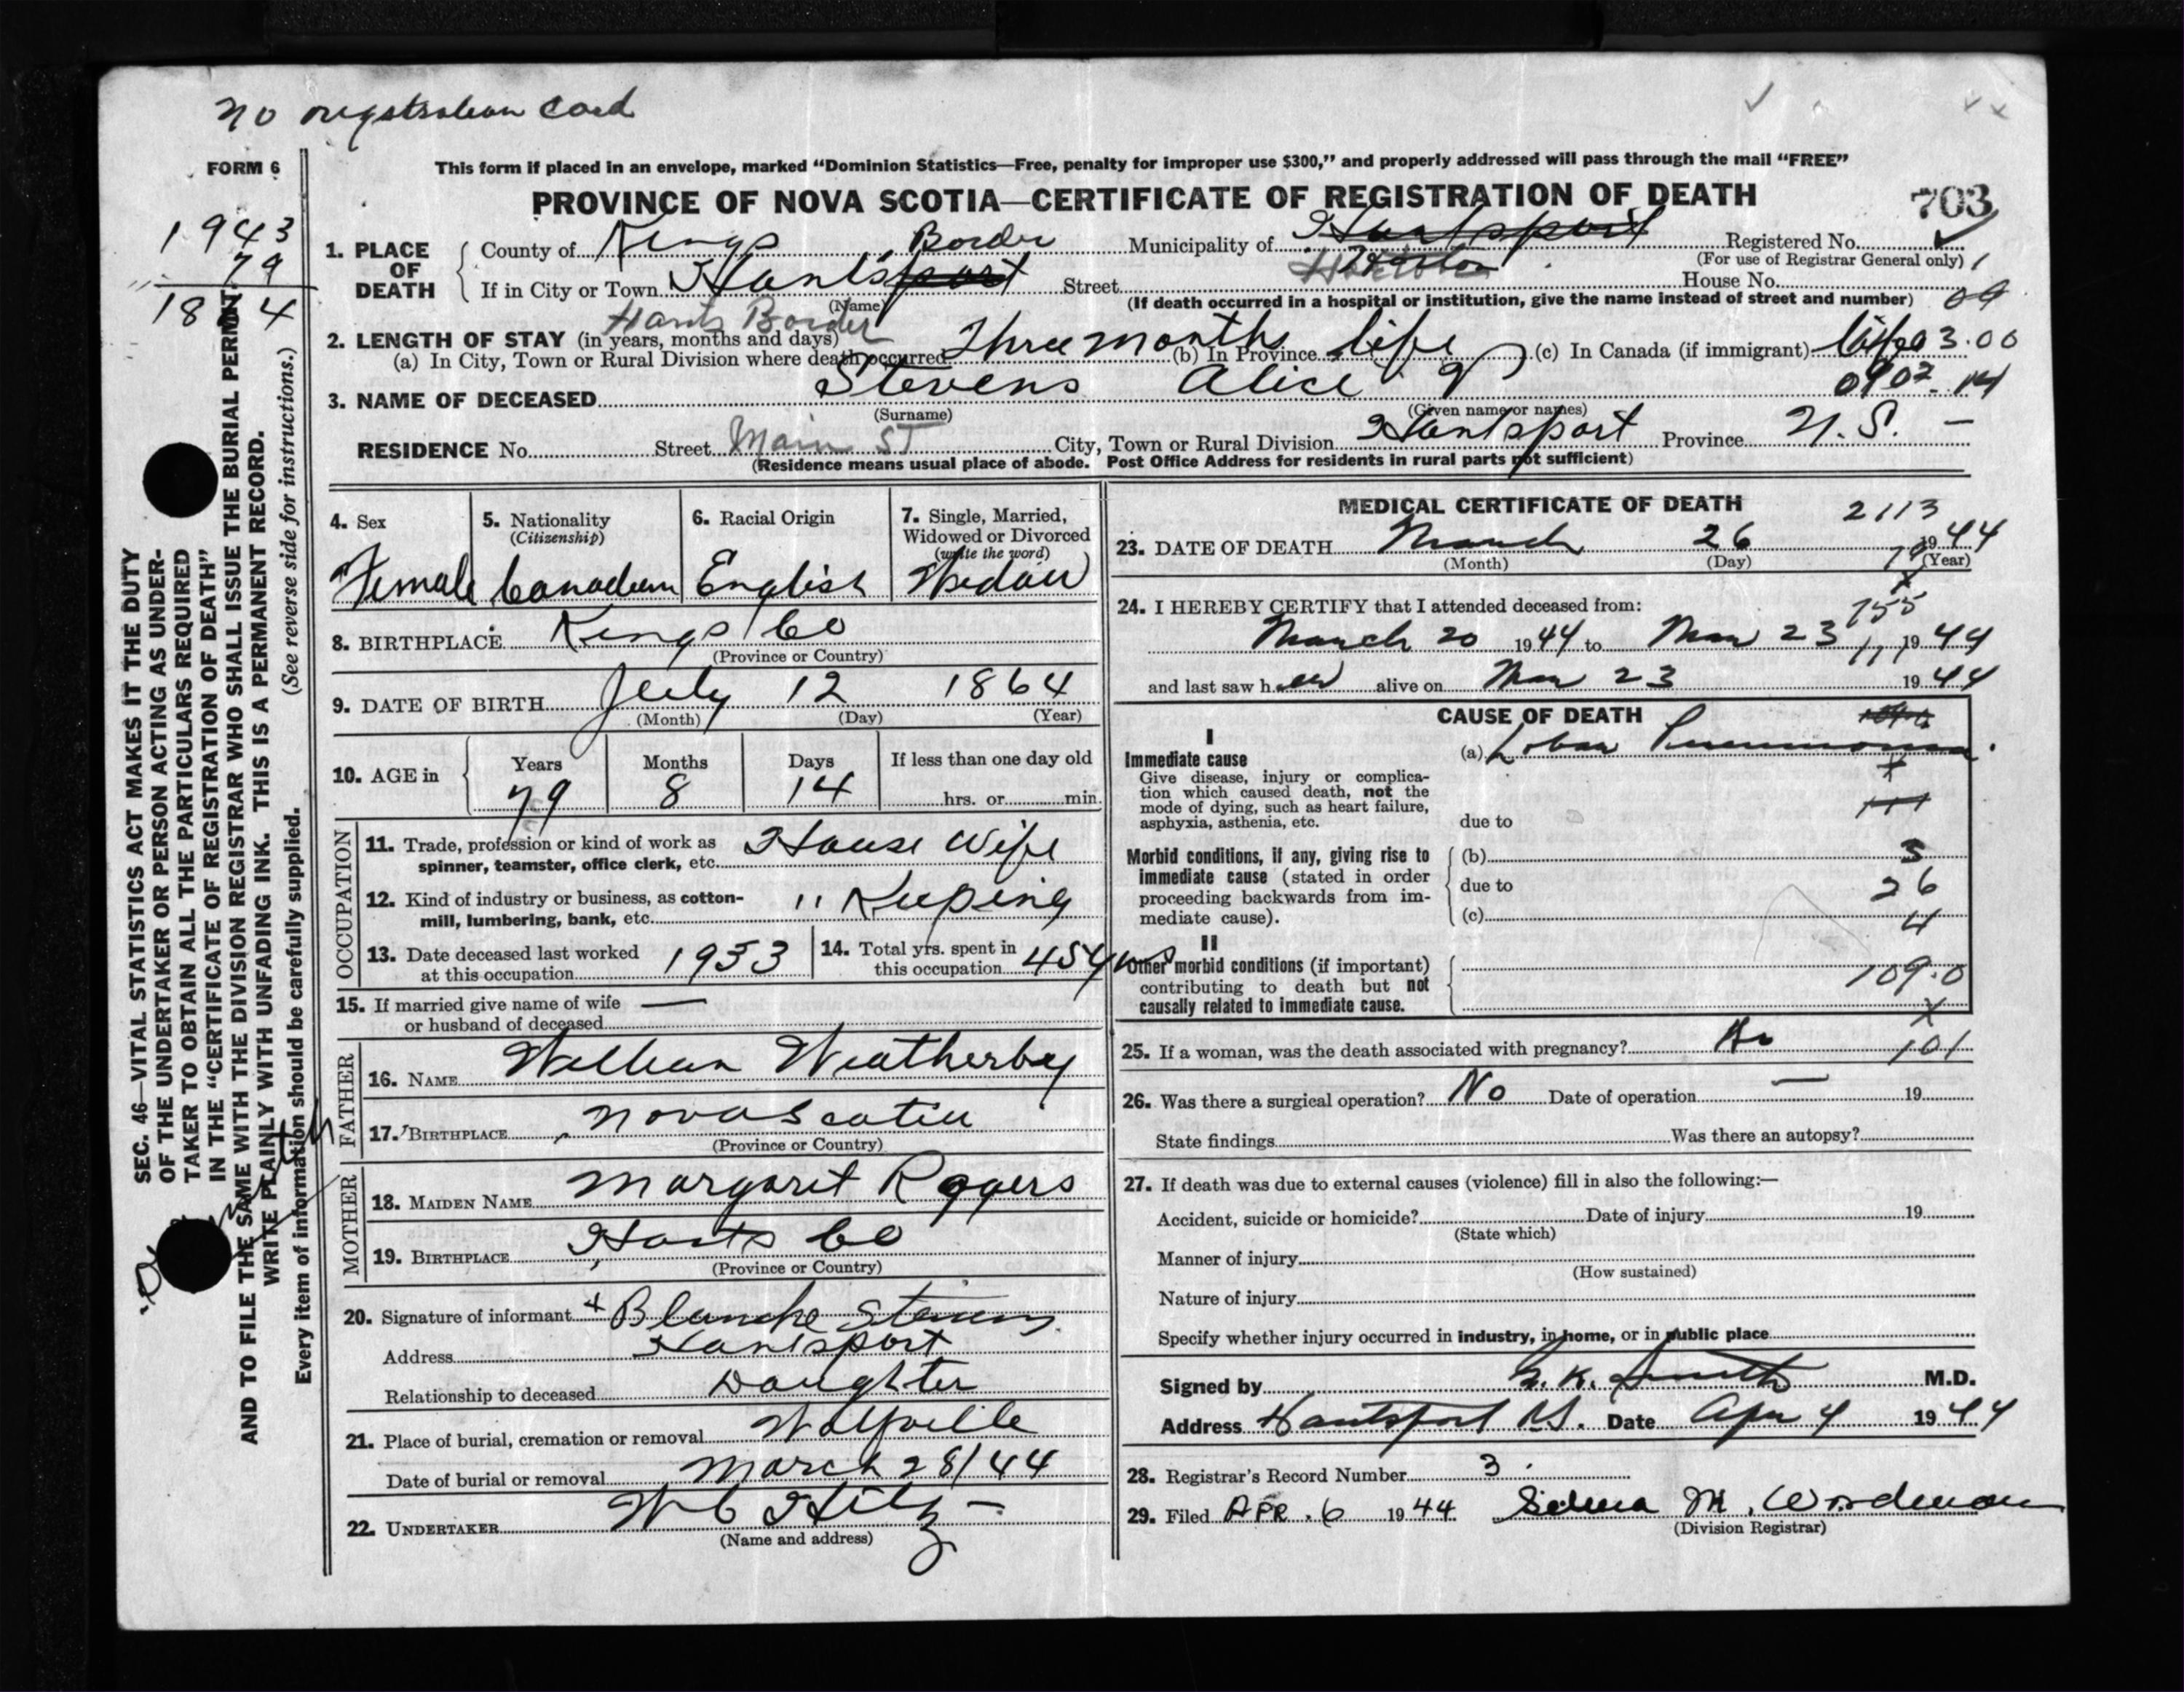 no registration card
FORM 6
This form if placed in an envelope, marked “Dominion Statistics—Free, penalty for improper use $300,” and properly addressed will pass through the mail “FREE”
PROVINCE OF NOVA SCOTIA—CERTIFICATE OF REGISTRATION OF DEATH
703
1943
79
18 4
1. PLACE OF DEATH
County of Kings Border Municipality of Hantsport Registered No.
(For use of Registrar General only) 1
If in City or Town Hantsport Street House No.
(Name) (If death occurred in a hospital or institution, give the name instead of street and number) 09
Hants Border
2. LENGTH OF STAY (in years, months and days)
(a) In City, Town or Rural Division where death occurred Three months (b) In Province life (c) In Canada (if immigrant) life 03.00
3. NAME OF DECEASED Stevens Alice 0902-14
(Surname) (Given name or names)
RESIDENCE No. Street Main ST City, Town or Rural Division Hantsport Province N.S. —
(Residence means usual place of abode. Post Office Address for residents in rural parts not sufficient)
SEC. 46—VITAL STATISTICS ACT MAKES IT THE DUTY
OF THE UNDERTAKER OR PERSON ACTING AS UNDER-
TAKER TO OBTAIN ALL THE PARTICULARS REQUIRED
IN THE “CERTIFICATE OF REGISTRATION OF DEATH”
AND TO FILE THE SAME WITH THE DIVISION REGISTRAR WHO SHALL ISSUE THE BURIAL PERMIT.
WRITE PLAINLY WITH UNFADING INK. THIS IS A PERMANENT RECORD.
(See reverse side for instructions.)
Every item of information should be carefully supplied.
4. Sex
Female
5. Nationality
(Citizenship)
Canadian
6. Racial Origin
English
7. Single, Married,
Widowed or Divorced
(write the word)
Widow
8. BIRTHPLACE Kings Co
(Province or Country)
9. DATE OF BIRTH July 12 1864
(Month) (Day) (Year)
10. AGE in
Years Months Days If less than one day old
79 8 14 hrs. or min.
OCCUPATION
11. Trade, profession or kind of work as
spinner, teamster, office clerk, etc. House Wife
12. Kind of industry or business, as cotton-
mill, lumbering, bank, etc. " Keeping
13. Date deceased last worked
at this occupation 1933
14. Total yrs. spent in
this occupation 45 yrs
15. If married give name of wife —
or husband of deceased
FATHER
16. NAME William Weatherby
17. BIRTHPLACE Nova Scotia
(Province or Country)
MOTHER
18. MAIDEN NAME Margarit Roggers
19. BIRTHPLACE Hants Co
(Province or Country)
20. Signature of informant Blanche Stevens
Address Hantsport
Relationship to deceased Daughter
21. Place of burial, cremation or removal Wolfville
Date of burial or removal March 28/44
22. UNDERTAKER W C Hiltz —
(Name and address)
MEDICAL CERTIFICATE OF DEATH 2113
23. DATE OF DEATH March 26 1944
(Month) (Day) (Year)
24. I HEREBY CERTIFY that I attended deceased from: 755
March 20 1944 to Mar 23 1944
and last saw her alive on Mar 23 1944
CAUSE OF DEATH
I
Immediate cause
Give disease, injury or complica-
tion which caused death, not the
mode of dying, such as heart failure,
asphyxia, asthenia, etc.
(a) Lobar Pneumonia.
due to
Morbid conditions, if any, giving rise to
immediate cause (stated in order
proceeding backwards from im-
mediate cause).
(b) 3
due to 26
(c) 4
II
Other morbid conditions (if important)
contributing to death but not
causally related to immediate cause.
109.0
25. If a woman, was the death associated with pregnancy? No 101
26. Was there a surgical operation? No Date of operation — 19
State findings Was there an autopsy?
27. If death was due to external causes (violence) fill in also the following:—
Accident, suicide or homicide? Date of injury 19
(State which)
Manner of injury
(How sustained)
Nature of injury
Specify whether injury occurred in industry, in home, or in public place
Signed by K. Smith M.D.
Address Hantsport N.S. Date Apr 4 1944
28. Registrar's Record Number 3
29. Filed APR. 6 1944 Selma M. Wordman
(Division Registrar)